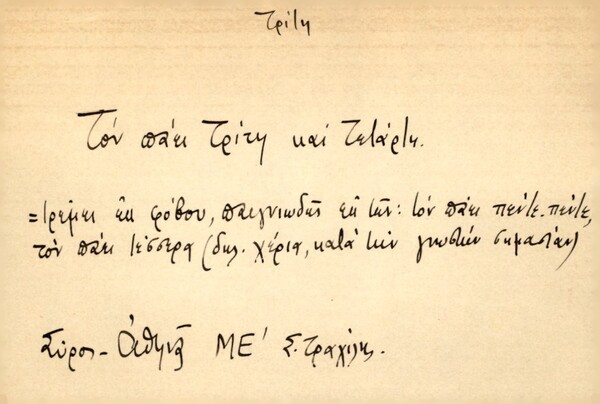 Τρίτη
Τὸν πάει Τρίτη καί Τετάρτη.
= τρέμει ἐκ φόβου, παιγνιωδῶς ἐκ τῆς: τὸν πάει πέντε-πέντε,
τὸν πάει τέσσερα (δηλ. χέρια, κατὰ τὴν γνωστὴν σημασίαν)
Σύρος - Ἀθηνᾶ ΜΕ´ Σ. Τραχίλης.